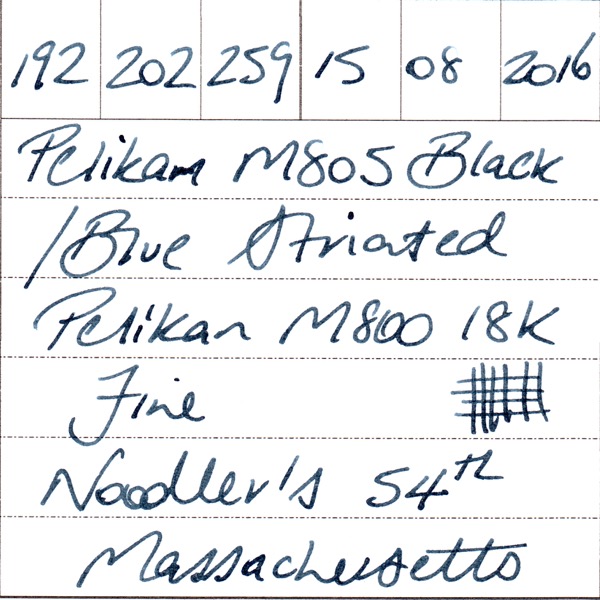 192 202 259 15 08 2016
Pelikan M805 Black
/Blue Striated
Pelikan M800 18K
Fine
Noodler's 54th
Massachusetts